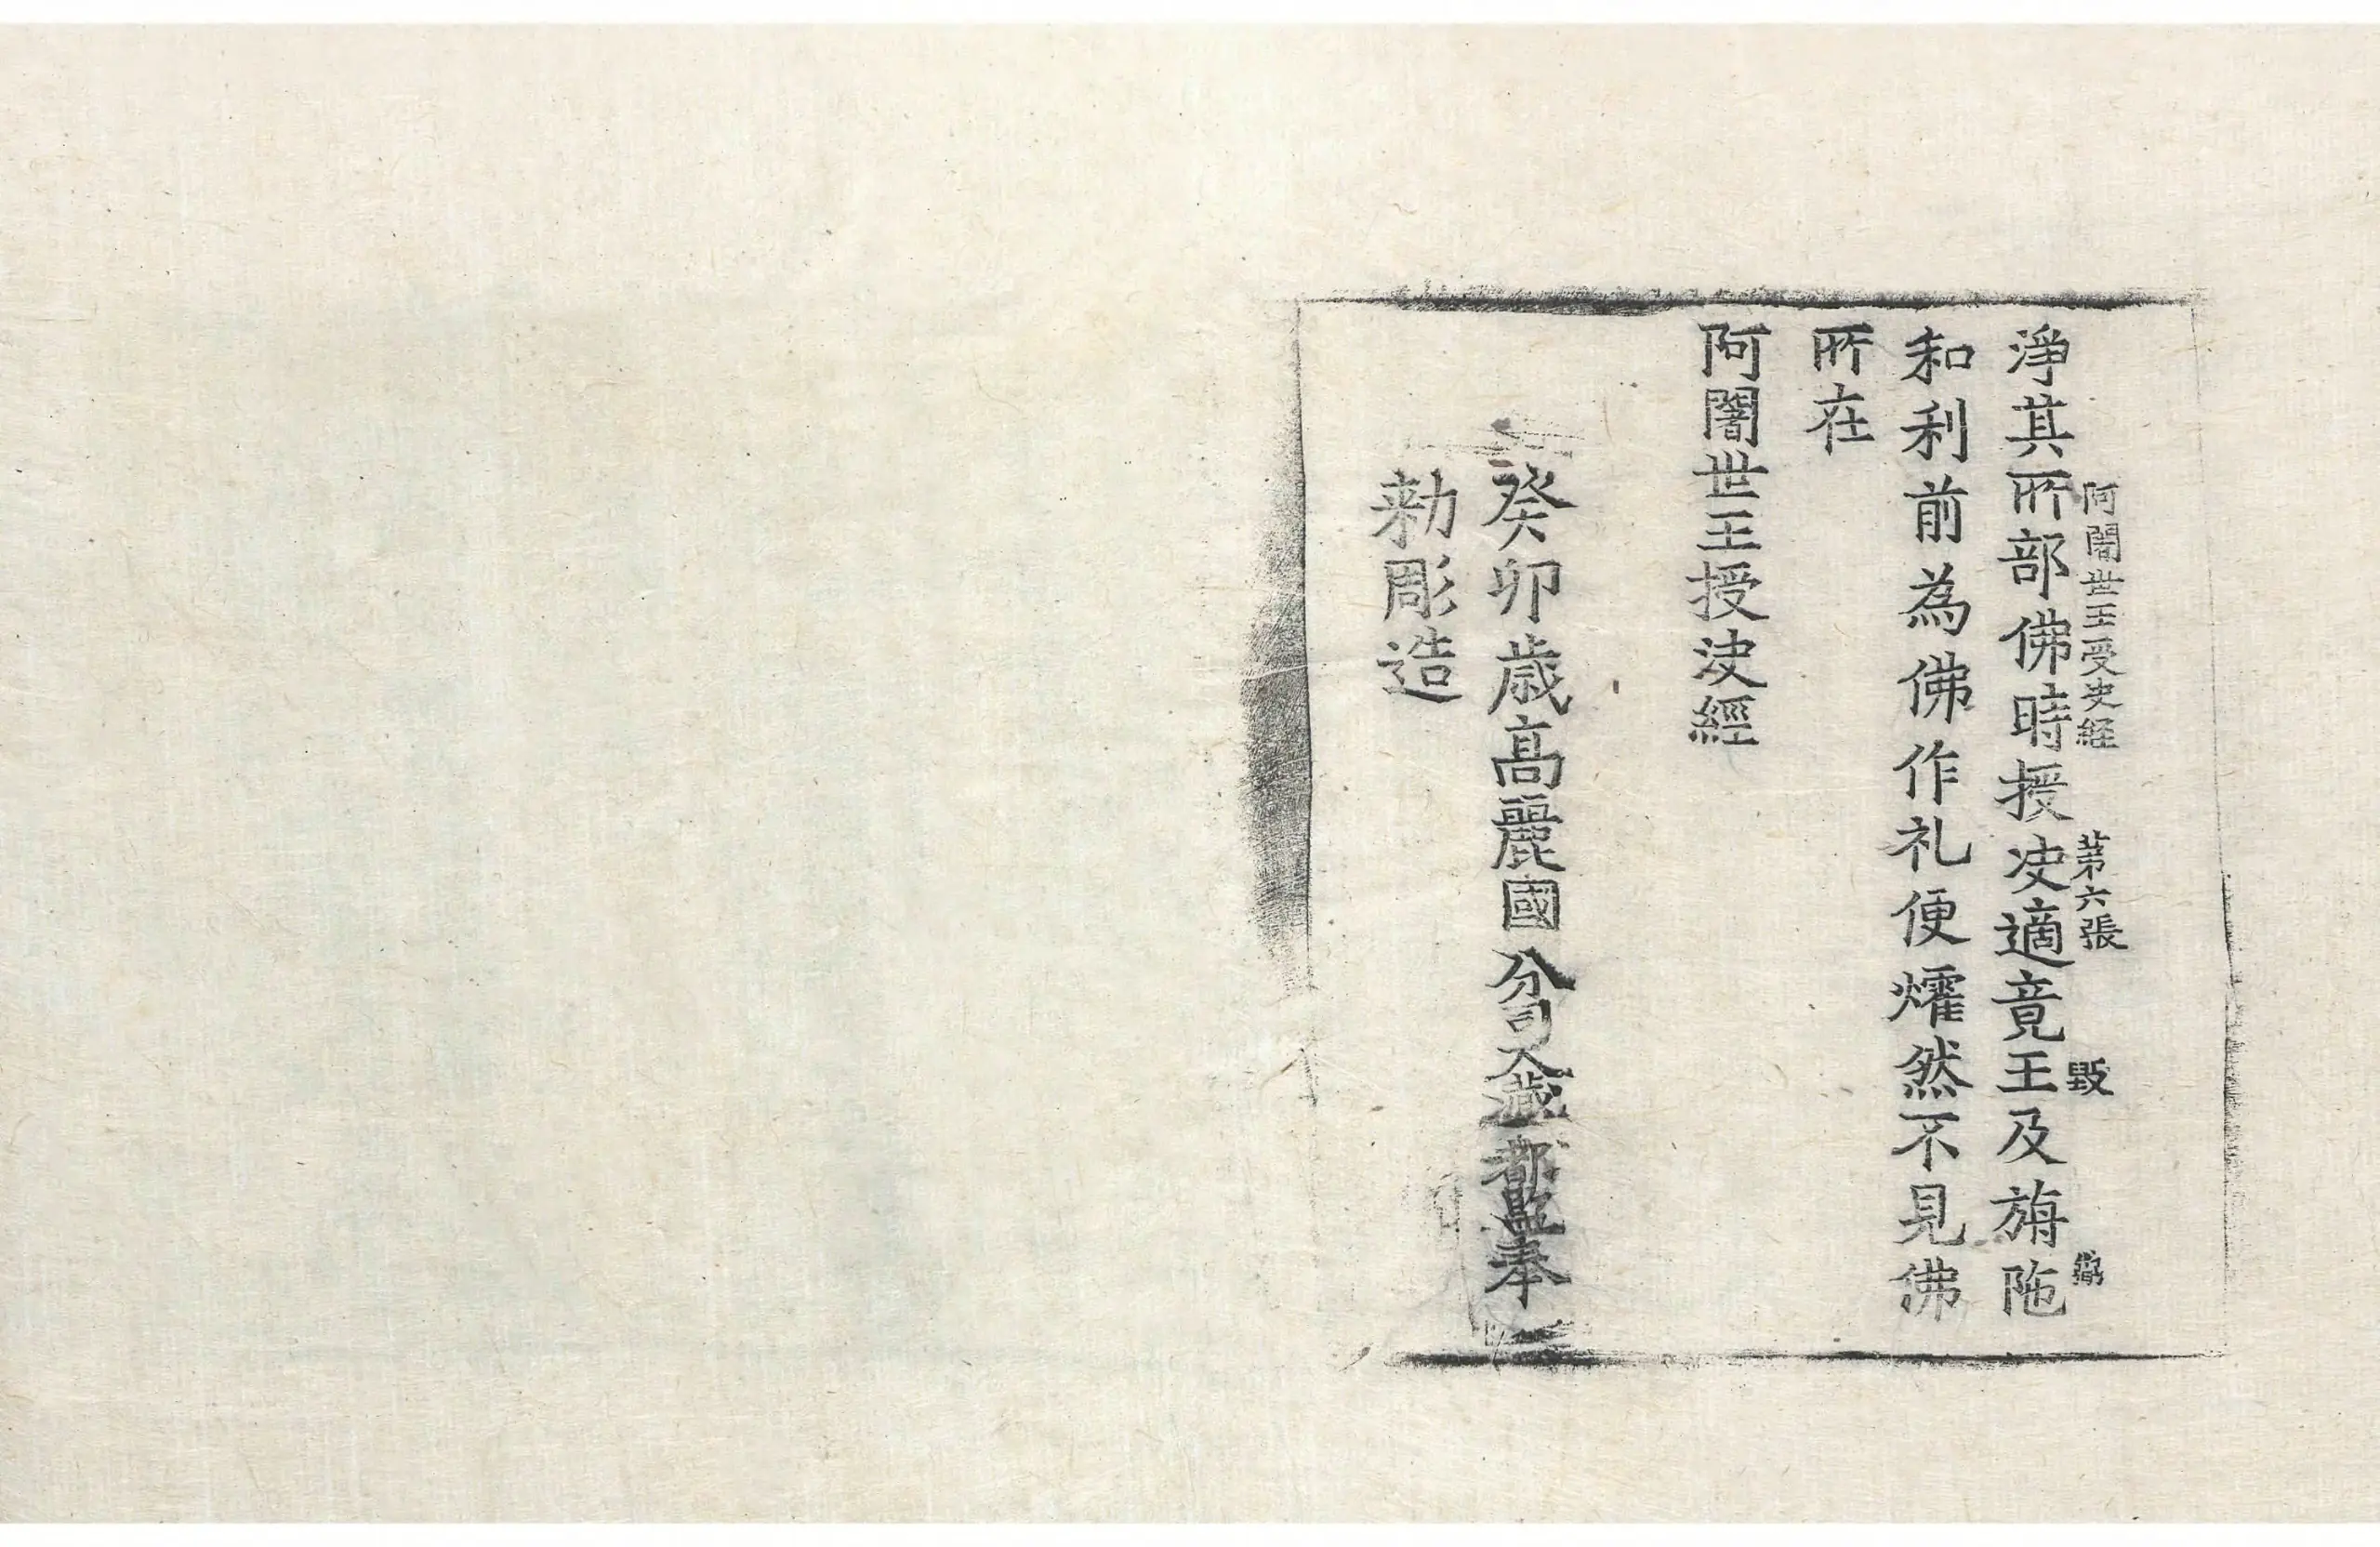 阿闍世王受决經 第六張 毀
淨其所部佛時授决適竟王及旃陁
和利前為佛作礼便燿然不見佛
所在
阿闍世王授決經
癸卯歳高麗國分司大藏都監奉
勑彫造